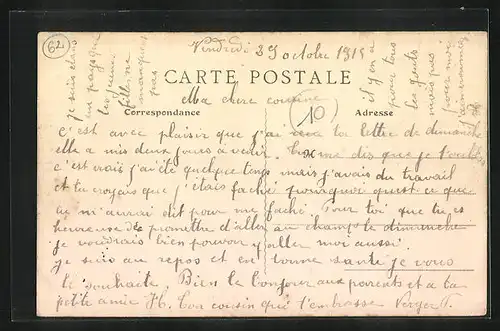 62
Vendredi 29 octobre 1915
CARTE POSTALE
Ma chere cousine
Correspondance
10
Adresse
c'est avec plaisir que j'ai la lettre de dimanche
elle a mis deux jours a venir. me dis que je t'oublie
c'est vrai j'ai été quelque temps mais j'avais du travail
et tu croyais que j'étais faché pourquoi quest ce que
tu m'aurai dit pour me faché Pour toi que tu es
heureuse de promettre d'aller au champs le dimanche
je voudrais bien pouvoir y aller moi aussi.
je suis au repos et en bonne santé je vous
le souhaite. Bien le bonjour aux parents et a ta
petite amie H. ton cousin qui t'embrasse
je suis dans
un pays que
les jeunes
filles ne
manques
pas
il y en a
pour tous
les gouts